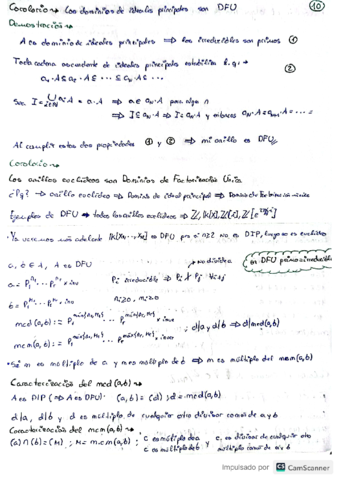 Corolario → Los dominios de ideales principales son DFU
10
Demostración
A es dominio de ideales principales ⟹ los irreducibles son primos ①
Toda cadena ascendente de ideales principales estabiliza
②
a₁·A ⊆ a₂·A ⊆ ... ⊆ aₙ·A ⊆ ...
Sea I = ⋃ aᵢ·A = a·A ⟹ a ∈ aₙ·A para algún n
⟹ I ⊆ aₙ·A ⟹ I = aₙ·A y entonces aₙ·A = aₙ₊₁·A = ...
Al cumplir estas dos propiedades ① y ② ⟹ mi anillo es DFU
Corolario
Los anillos euclídeos son Dominios de Factorización Única
¿Pq? → anillo euclídeo ⟹ Dominio de ideal principal ⟹ Dominio de factorización única
Ejemplos de DFU → todos los anillos euclídeos ⟹ ℤ, lk[x], ℤ[i], ℤ
· Ya veremos más adelante lk[x₁,...,xₙ] es DFU pero si n≥2 no es DIP, luego no es euclídeo
a, b ∈ A, A es DFU
no divide a
en DFU primo = irreducible
a = P₁ ... Pᵣ · inv
Pᵢ irreducible ⟹ Pᵢ ∤ Pⱼ
b = P₁ ... Pᵣ · inv
nᵢ ≥ 0, mᵢ ≥ 0
mcd (a,b) := P₁ ... Pᵣ · inv
; d/a y d/b ⟹ d/mcd(a,b)
mcm (a,b) := P₁ ... Pᵣ · inv
· Si m es múltiplo de a y m es múltiplo de b ⟹ m es múltiplo del mcm(a,b)
Caracterización del mcd (a,b)
A es DIP (⟹ A es DFU) (a,b) = (d) ; d = mcd(a,b)
d/a, d/b y d es múltiplo de cualquier otro divisor común de a y b
Caracterización del mcm (a,b)
(a) ∩ (b) = (M) ; M = mcm(a,b) ;
c es múltiplo de a
c es múltiplo de b
y c es divisor de cualquier otro
múltiplo común de a y b
Impulsado por CS CamScanner